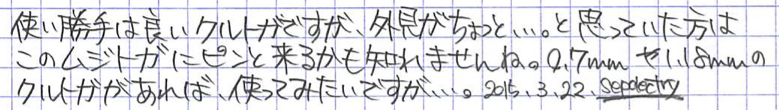 使い勝手は良いクルトガですが、外見がちょっと…。と思っていた方は
このムジトガにピンと来るかも知れませんね。0.7mmや1.18mmの
クルトガがあれば、使ってみたいですが…。2015.3.22.